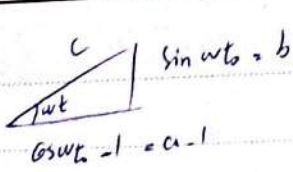 c
sin ωt₀ = b
ωt
cos ωt₀ - 1 = a - 1